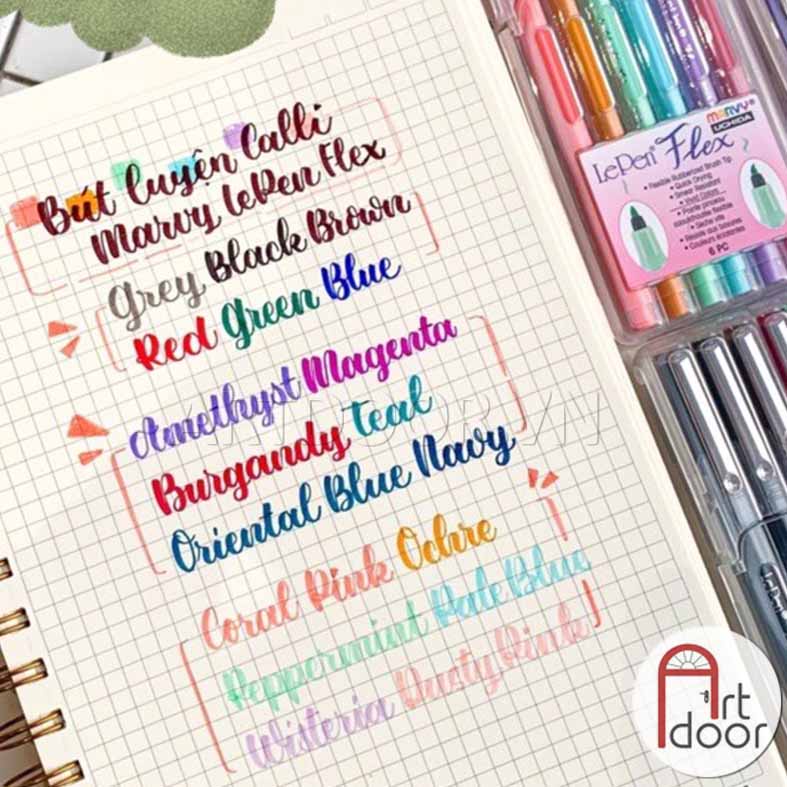 Bút luyện Calli
Marvy LePen Flex
Grey Black Brown
Red Green Blue
Amethyst Magenta
Burgandy Teal
Oriental Blue Navy
Coral Pink Ochre
Peppermint Pale Blue
Wisteria Dusty Pink
ARTDOOR.VN
MARVY®
UCHIDA
LePen® Flex
• Flexible Rubberized Brush Tip
• Quick Drying
• Smear Resistant
• Vivid Colors
• Pointe pinceau
caoutchoutée flexible
• Sèche vite
• Résiste aux bavures
• Couleurs éclatantes
6 PC
Art
door